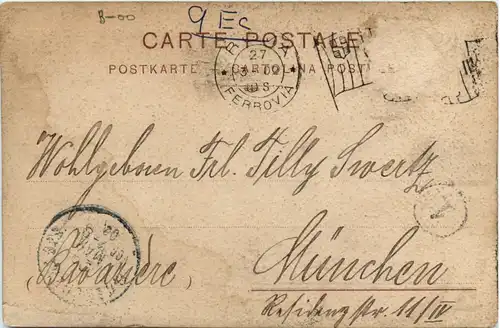 8-00
9 Es
CARTE POSTALE
POSTKARTE CARTOLINA POSTALE
27
02
FERROVIA
Wohlgeboren Frl. Tilly Swertz
(Bavariere) München
Residenzstr. 11/IV